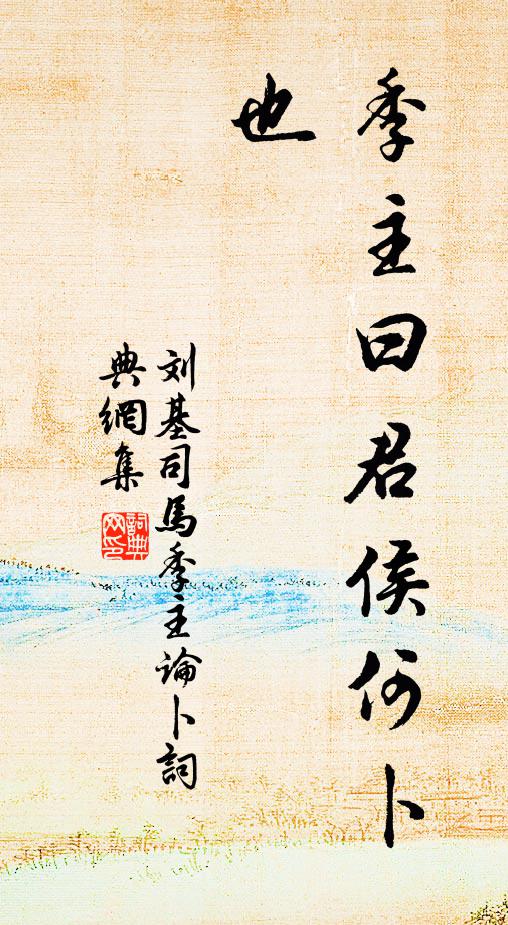 季主曰君侯何卜
也
刘基司馬季主論卜詞
典網集
詞典
网印